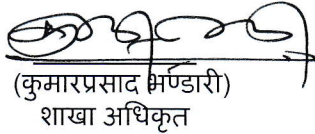 (कुमारप्रसाद भण्डारी)
शाखा अधिकृत